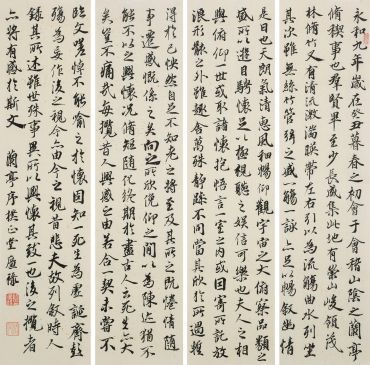 永和九年歲在癸丑暮春之初會于會稽山陰之蘭亭
脩稧事也羣賢畢至少長咸集此地有崇山峻領茂
林脩竹又有清流激湍暎帶左右引以為流觴曲水列坐
其次雖無絲竹管弦之盛一觴一詠亦足以暢敘幽情
是日也天朗氣清惠風和暢仰觀宇宙之大俯察品類之
盛所以遊目騁懷足以極視聽之娛信可樂也夫人之相
與俯仰一世或取諸懷抱悟言一室之內或因寄所託放
浪形骸之外雖趣舍萬殊靜躁不同當其欣於所遇暫
得於己怏然自足不知老之將至及其所之既惓情隨
事遷感慨係之矣向之所欣俛仰之間以為陳迹猶不
能不以之興懷況脩短隨化終期於盡古人云死生亦大
矣豈不痛哉每攬昔人興感之由若合一契未嘗不
臨文嗟悼不能喻之於懷固知一死生為虛誕齊彭
殤為妄作後之視今亦由今之視昔悲夫故列敘時人
錄其所述雖世殊事異所以興懷其致一也後之攬者
亦將有感於斯文 蘭亭序